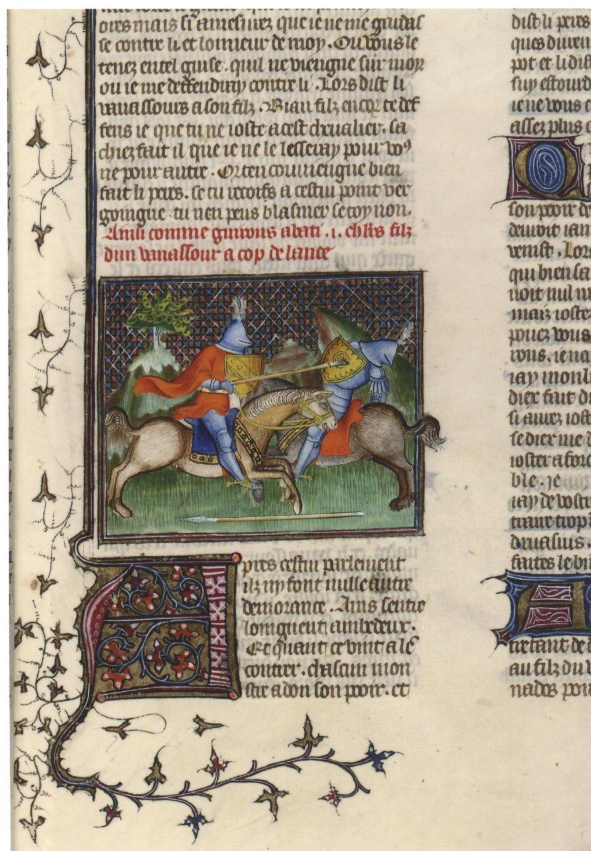 ores mais si ames mez que ie ne me gardas
se contre li et lonneur de moy. Ou vous le
tenez en tel guise. quil ne viengne sur moy
ou ie me deffendray contre li. Lors dist li
vauassours a son filz. Biau filz encor te def
fens ie que tu ne ioste a cest cheualier. sa
chiez fait il que ie ne le lesseray pour vo9
ne pour autre. Or ten conuiengne bien
fait li peres. se tu recoifs a cestui point ver
goingne tu nen peus blasmer se toy non.
Ainsi comme guirons abati .i. chlrs filz
dun vauassour a cop de lance
Apres cestui parlement
ilz ny font nulle autre
demorance. Ains sentre
lomgnent ambedeux.
Et quant ce vint a lē
contrer. chascun mon
stre a don son pooir. et
dist li peres
ques duren
pot et li dist
suy estourd
ie ne vous
assez plus
O
son pooir de
deuoit iam
venist. Lors
qui bien sa
uoit nul
mais ioster
vous.
dier fait
si auez iost
se dier me
ioster a force
ble. ie
iay de vostre
traux trop
faites le
A
tretant de
au filz du v
nados pou